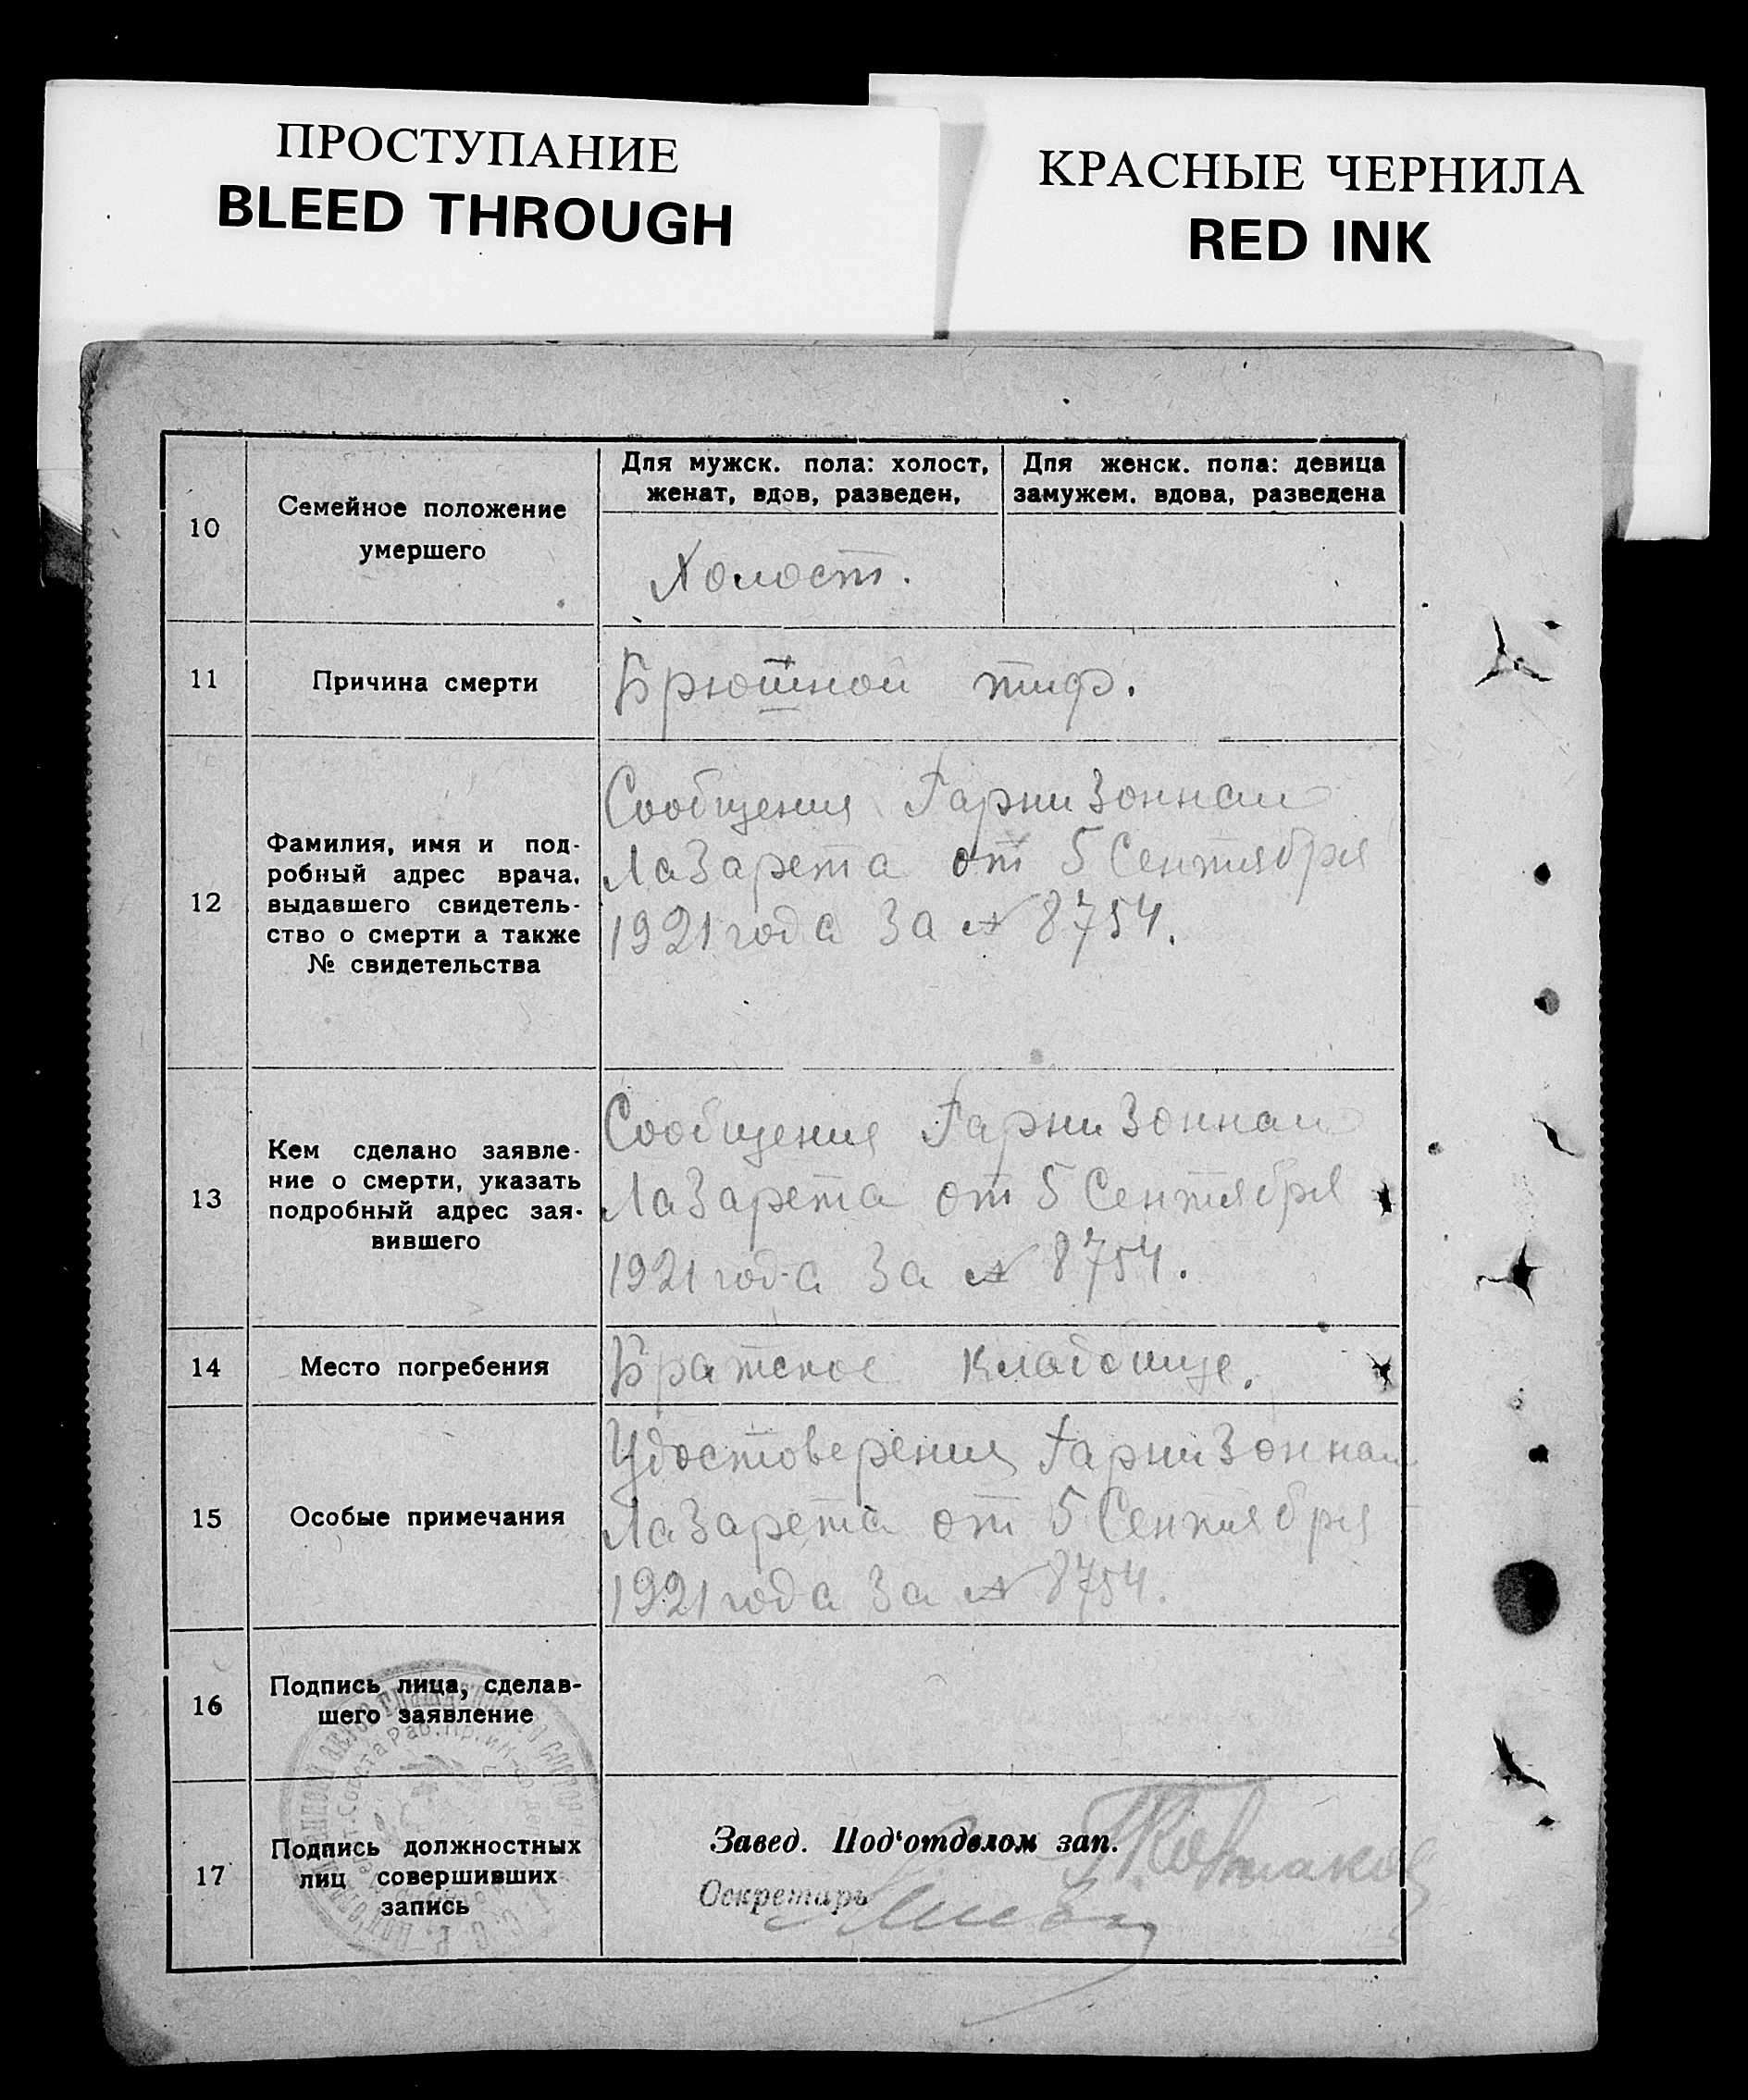 ПРОСТУПАНИЕ
BLEED THROUGH
КРАСНЫЕ ЧЕРНИЛА
RED INK
10
Семейное положение
умершего
Для мужск. пола: холост,
женат, вдов, разведен,
Для женск. пола: девица
замужем. вдова, разведена
Холост.
11
Причина смерти
Брюшной тиф.
12
Фамилия, имя и под-
робный адрес врача,
выдавшего свидетель-
ство о смерти а также
№ свидетельства
Сообщения Гарнизоннаго
Лазарета от 5 Сентября
1921 года За № 8754.
13
Кем сделано заявле-
ние о смерти, указать
подробный адрес зая-
вившего
Сообщения Гарнизоннаго
Лазарета от 5 Сентября
1921 года За № 8754.
14
Место погребения
Братское кладбище.
15
Особые примечания
Удостоверения Гарнизоннаго
Лазарета от 5 Сентября
1921 года За № 8754.
16
Подпись лица, сделав-
шего заявление
17
Подпись должностных
лиц совершивших
запись
Завед. Под'отделом зап.
Секретарь